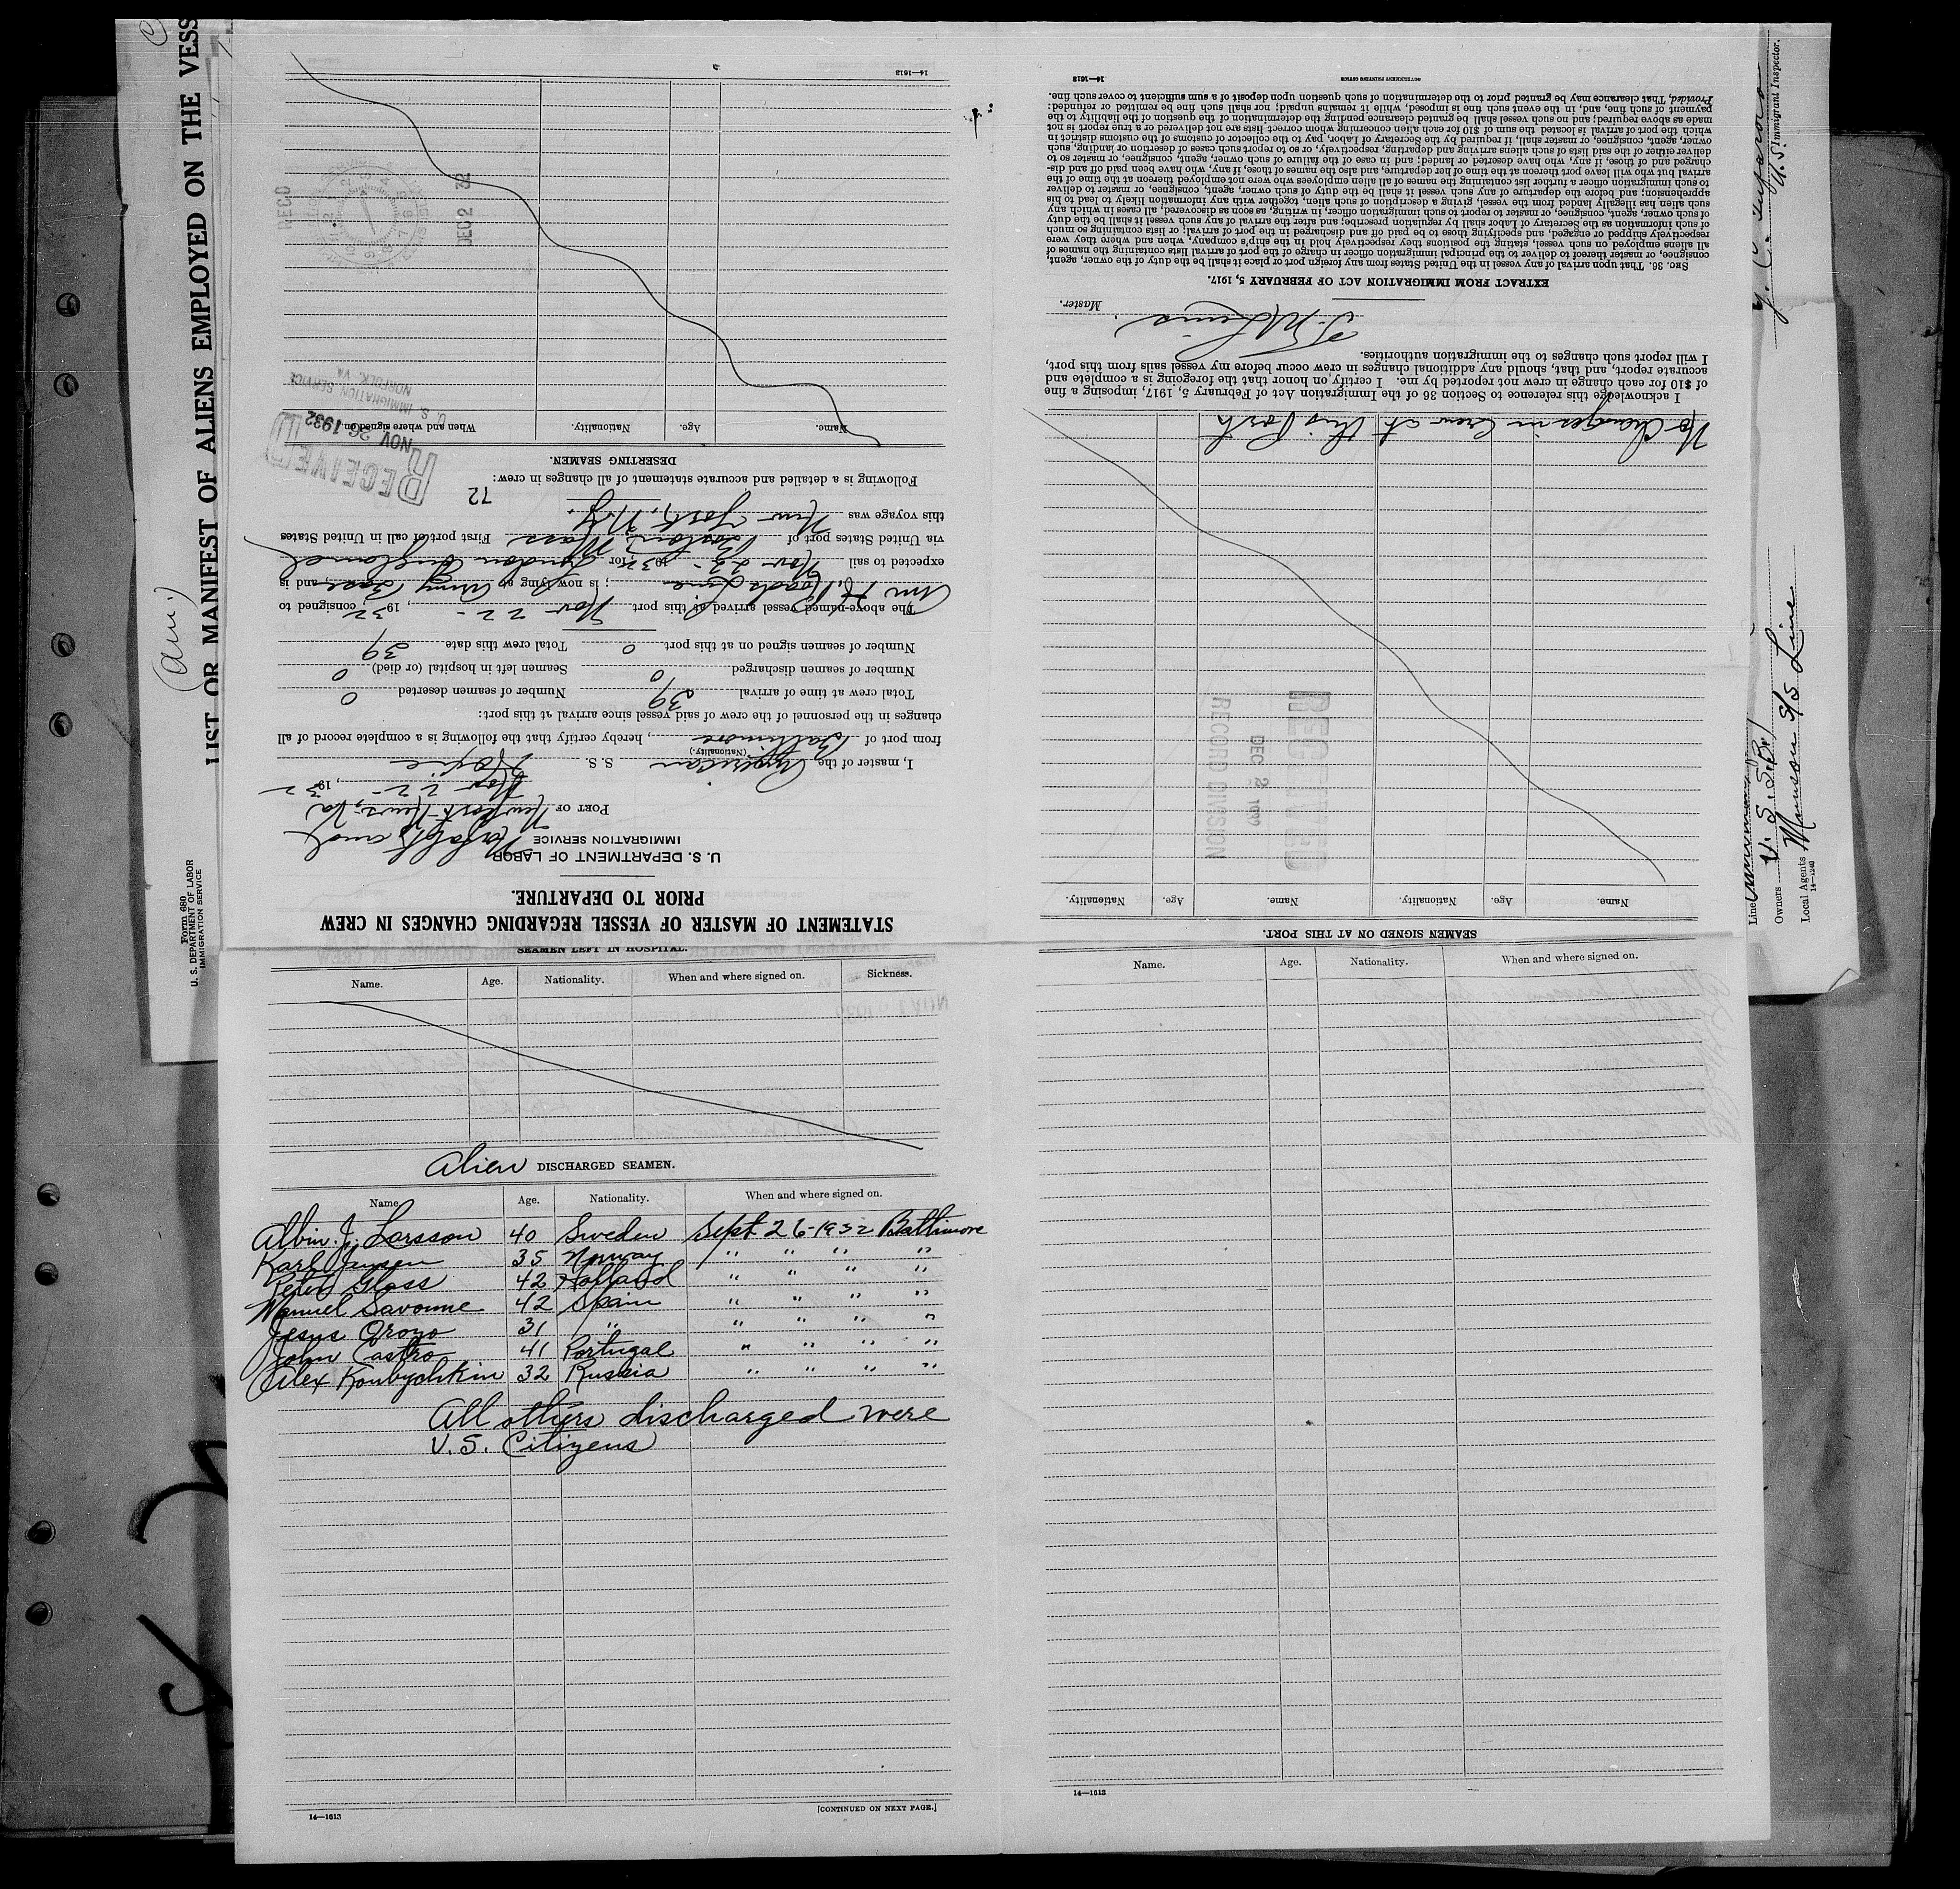 LIST OR MANIFEST OF ALIENS EMPLOYED ON THE VESS
(am.)
Form 680
U. S. DEPARTMENT OF LABOR
IMMIGRATION SERVICE
STATEMENT OF MASTER OF VESSEL REGARDING CHANGES IN CREW
PRIOR TO DEPARTURE.
U. S. DEPARTMENT OF LABOR
IMMIGRATION SERVICE
Norfolk and
PORT OF Newport News, Va
Nov 22 -, 1932
I, master of the American S. S.
(Nationality.)
from port of Baltimore, hereby certify that the following is a complete record of all
changes in the personnel of the crew of said vessel since arrival at this port:
Total crew at time of arrival 39 Number of seamen deserted 0
Number of seamen discharged 0 Seamen left in hospital (or died) 0
Number of seamen signed on at this port 0 Total crew this date 39
The above-named vessel arrived at this port Nov 22 -, 1932, consigned to
Am H. Roads Line; is now lying at Army Base, and is
expected to sail Nov 22 - 1932, for London England
via United States port of Boston, Mass First port of call in United States
this voyage was New York, N.Y.
Following is a detailed and accurate statement of all changes in crew:
72
DESERTING SEAMEN.
Name. Age. Nationality. When and where signed on.
RECEIVED
NOV 26 1932
U. S. IMMIGRATION SERVICE
NORFOLK, VA
REC'D
DEC 2 32
14—1613
SEAMEN SIGNED ON AT THIS PORT.
Name. Age. Nationality. Name. Age. Nationality.
RECEIVED
DEC 2 1932
RECORD DIVISION
No Changes in Crew at this Port
I acknowledge this reference to Section 36 of the Immigration Act of February 5, 1917, imposing a fine
of $10 for each change in crew not reported by me. I certify, on honor that the foregoing is a complete and
accurate report, and that, should any additional changes in crew occur before my vessel sails from this port,
I will report such changes to the immigration authorities.
Master.
EXTRACT FROM IMMIGRATION ACT OF FEBRUARY 5, 1917.
Sec. 36. That upon arrival of any vessel in the United States from any foreign port or place it shall be the duty of the owner, agent,
consignee, or master thereof to deliver to the principal immigration officer in charge of the port of arrival lists containing the names of
all aliens employed on such vessel, stating the positions they respectively hold in the ship's company, when and where they were
respectively shipped or engaged, and specifying those to be paid off and discharged in the port of arrival; or lists containing so much
of such information as the Secretary of Labor shall by regulation prescribe; and after the arrival of any such vessel it shall be the duty
of such owner, agent, consignee, or master to report to such immigration officer, in writing, as soon as discovered, all cases in which any
such alien has illegally landed from the vessel, giving a description of such alien, together with any information likely to lead to his
apprehension; and before the departure of any such vessel it shall be the duty of such owner, agent, consignee, or master to deliver
to such immigration officer a further list containing the names of all alien employees who were not employed thereon at the time of the
arrival but who will leave port thereon at the time of her departure, and also the names of those, if any, who have been paid off and dis-
charged and of those, if any, who have deserted or landed; and in case of the failure of such owner, agent, consignee, or master so to
deliver either of the said lists of such aliens arriving and departing, respectively, or so to report such cases of desertion or landing, such
owner, agent, consignee, or master, shall, if required by the Secretary of Labor, pay to the collector of customs of the customs district in
which the port of arrival is located the sum of $10 for each alien concerning whom correct lists are not delivered or a true report is not
made as above required; and no such vessel shall be granted clearance pending the determination of the question of the liability to the
payment of such fine, and, in the event such fine is imposed, while it remains unpaid; nor shall such fine be remitted or refunded:
Provided, That clearance may be granted prior to the determination of such question upon deposit of a sum sufficient to cover such fine.
GOVERNMENT PRINTING OFFICE
14—1613
U. S. Immigrant Inspector.
Line
Owners U. S. S. B.
Local Agents Munson S/S Line
14—1240
SEAMEN LEFT IN HOSPITAL.
Name. Age. Nationality. When and where signed on. Sickness.
Alien DISCHARGED SEAMEN.
Name. Age. Nationality. When and where signed on.
Albin. J. Larsson 40 Sweden Sept 26-1932 Baltimore
Karl Jensen 35 Norway " " " "
Peter Glass 42 Holland " " " "
Manuel Savonne 42 Spain " " " "
Jesus Oroyo 31 " " " " "
John Castro 41 Portugal " " " "
Alex Koubychkin 32 Russia " " " "
All others discharged were
U.S. Citizens
14—1613
[CONTINUED ON NEXT PAGE.]
Name. Age. Nationality. When and where signed on.
14—1613